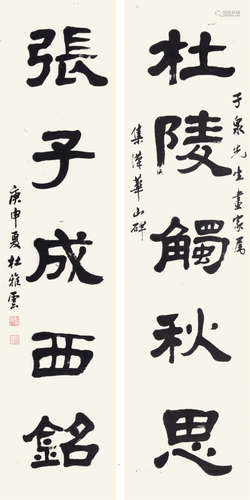 杜陵觸秋思
于泉先生畫家屬
集漢華山碑
張子成西銘
庚申夏杜雅雲